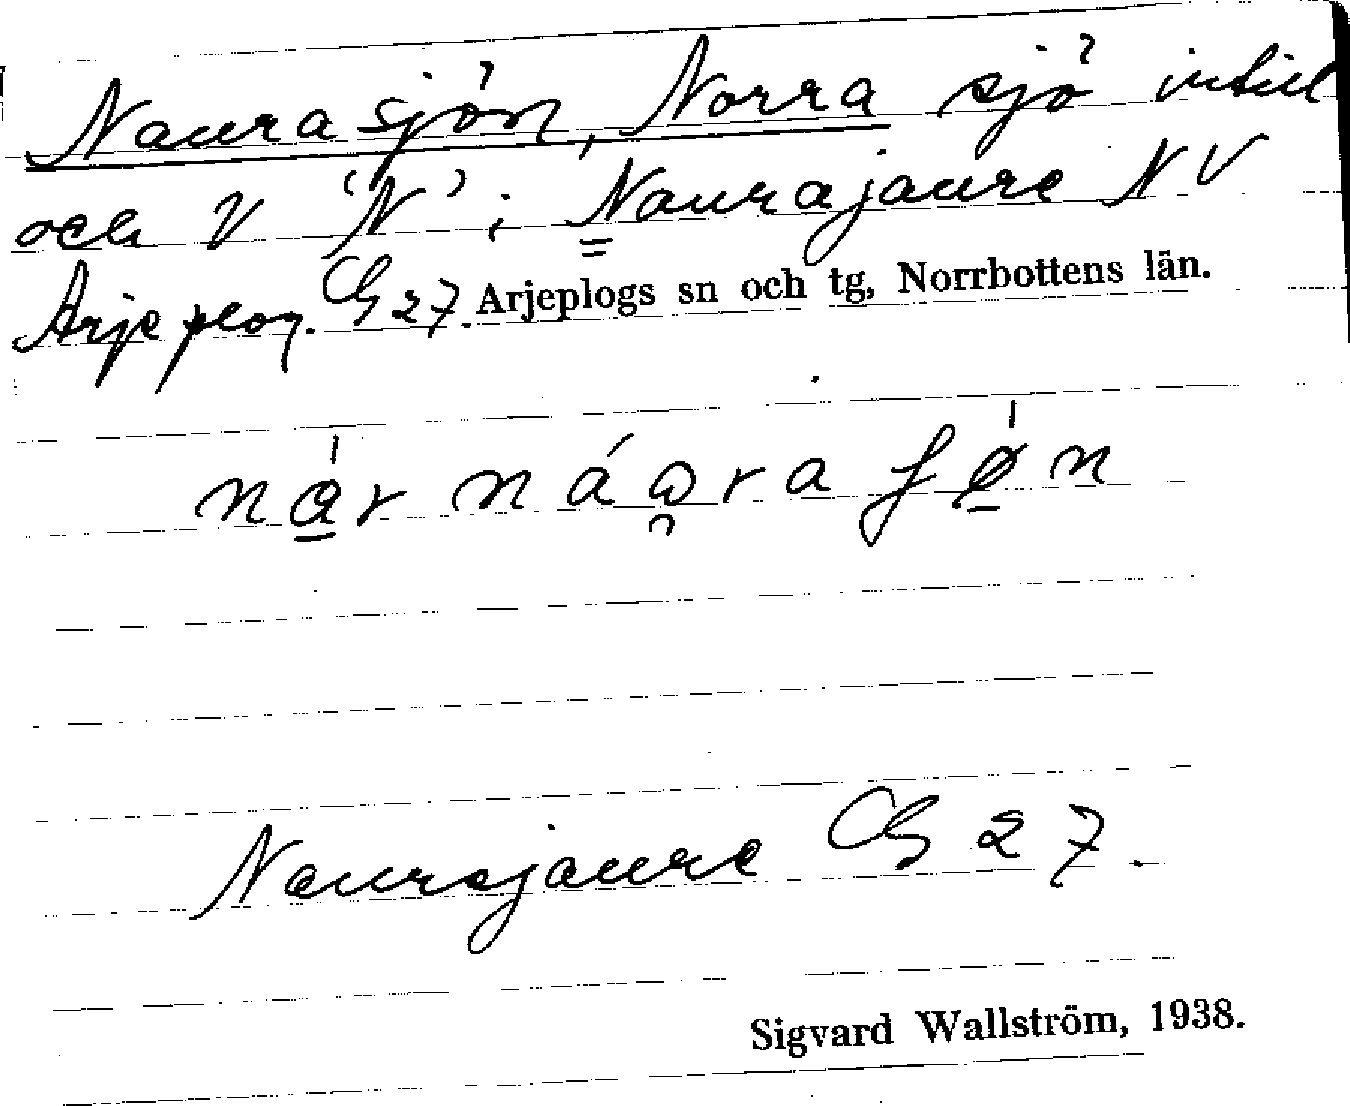 Naurasjön, Norra sjö intill
och V 'N' i Naurajaure NV
Arjeplog. Gb 27. Arjeplogs sn och tg, Norrbottens län.
Naursjaure Gb 27.
Sigvard Wallström, 1938.